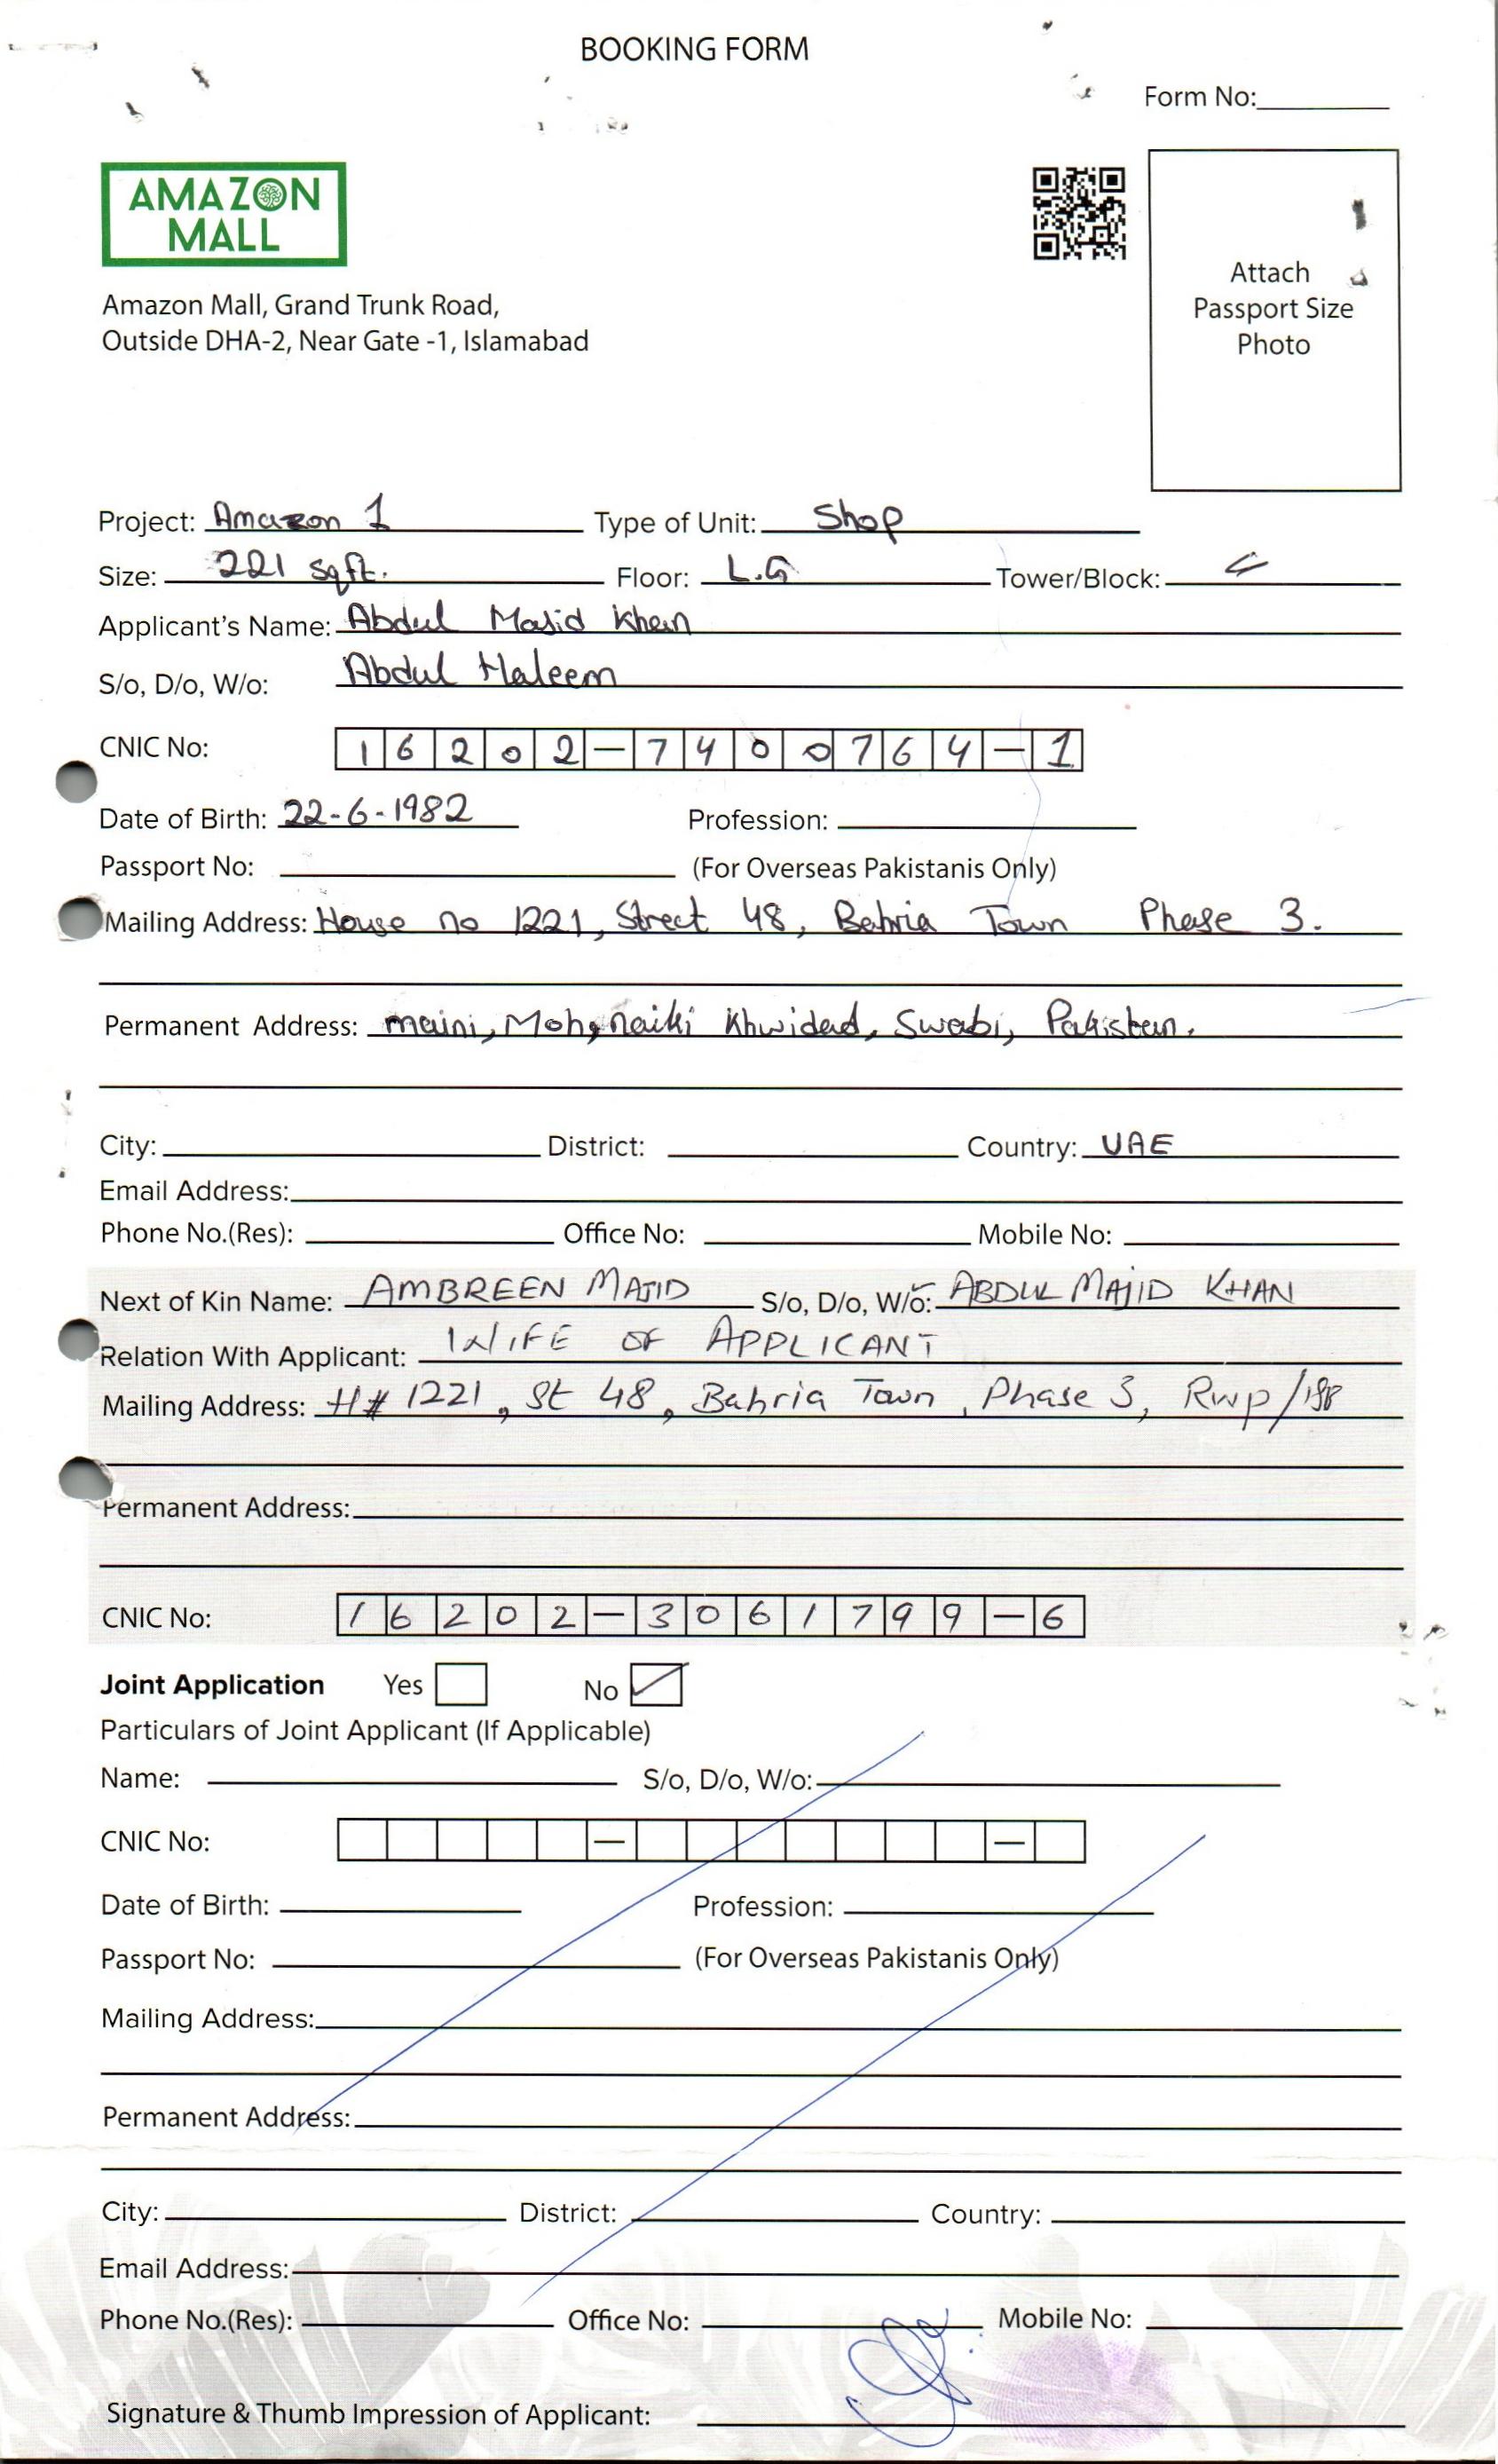 BOOKING FORM
Form No:
AMAZON
MALL
Amazon Mall, Grand Trunk Road,
Outside DHA-2, Near Gate -1, Islamabad
Attach
Passport Size
Photo
Project: Amazon 1 Type of Unit: Shop
Size: 221 sqft. Floor: L.G Tower/Block:
Applicant's Name: Abdul Majid Khan
S/o, D/o, W/o: Abdul Haleem
CNIC No: 16202-7400764-1
Date of Birth: 22-6-1982 Profession:
Passport No: (For Overseas Pakistanis Only)
Mailing Address: House no 1221, Street 48, Bahria Town Phase 3.
Permanent Address: maini, Moh, naiki Khwidad, Swabi, Pakistan.
City: District: Country: UAE
Email Address:
Phone No.(Res): Office No: Mobile No:
Next of Kin Name: AMBREEN MAJID S/o, D/o, W/o: ABDUL MAJID KHAN
Relation With Applicant: WIFE OF APPLICANT
Mailing Address: H# 1221, St 48, Bahria Town, Phase 3, Rwp/
Permanent Address:
CNIC No: 16202-3061799-6
Joint Application Yes No
Particulars of Joint Applicant (If Applicable)
Name: S/o, D/o, W/o:
CNIC No: — —
Date of Birth: Profession:
Passport No: (For Overseas Pakistanis Only)
Mailing Address:
Permanent Address:
City: District: Country:
Email Address:
Phone No.(Res): Office No: Mobile No:
Signature & Thumb Impression of Applicant: